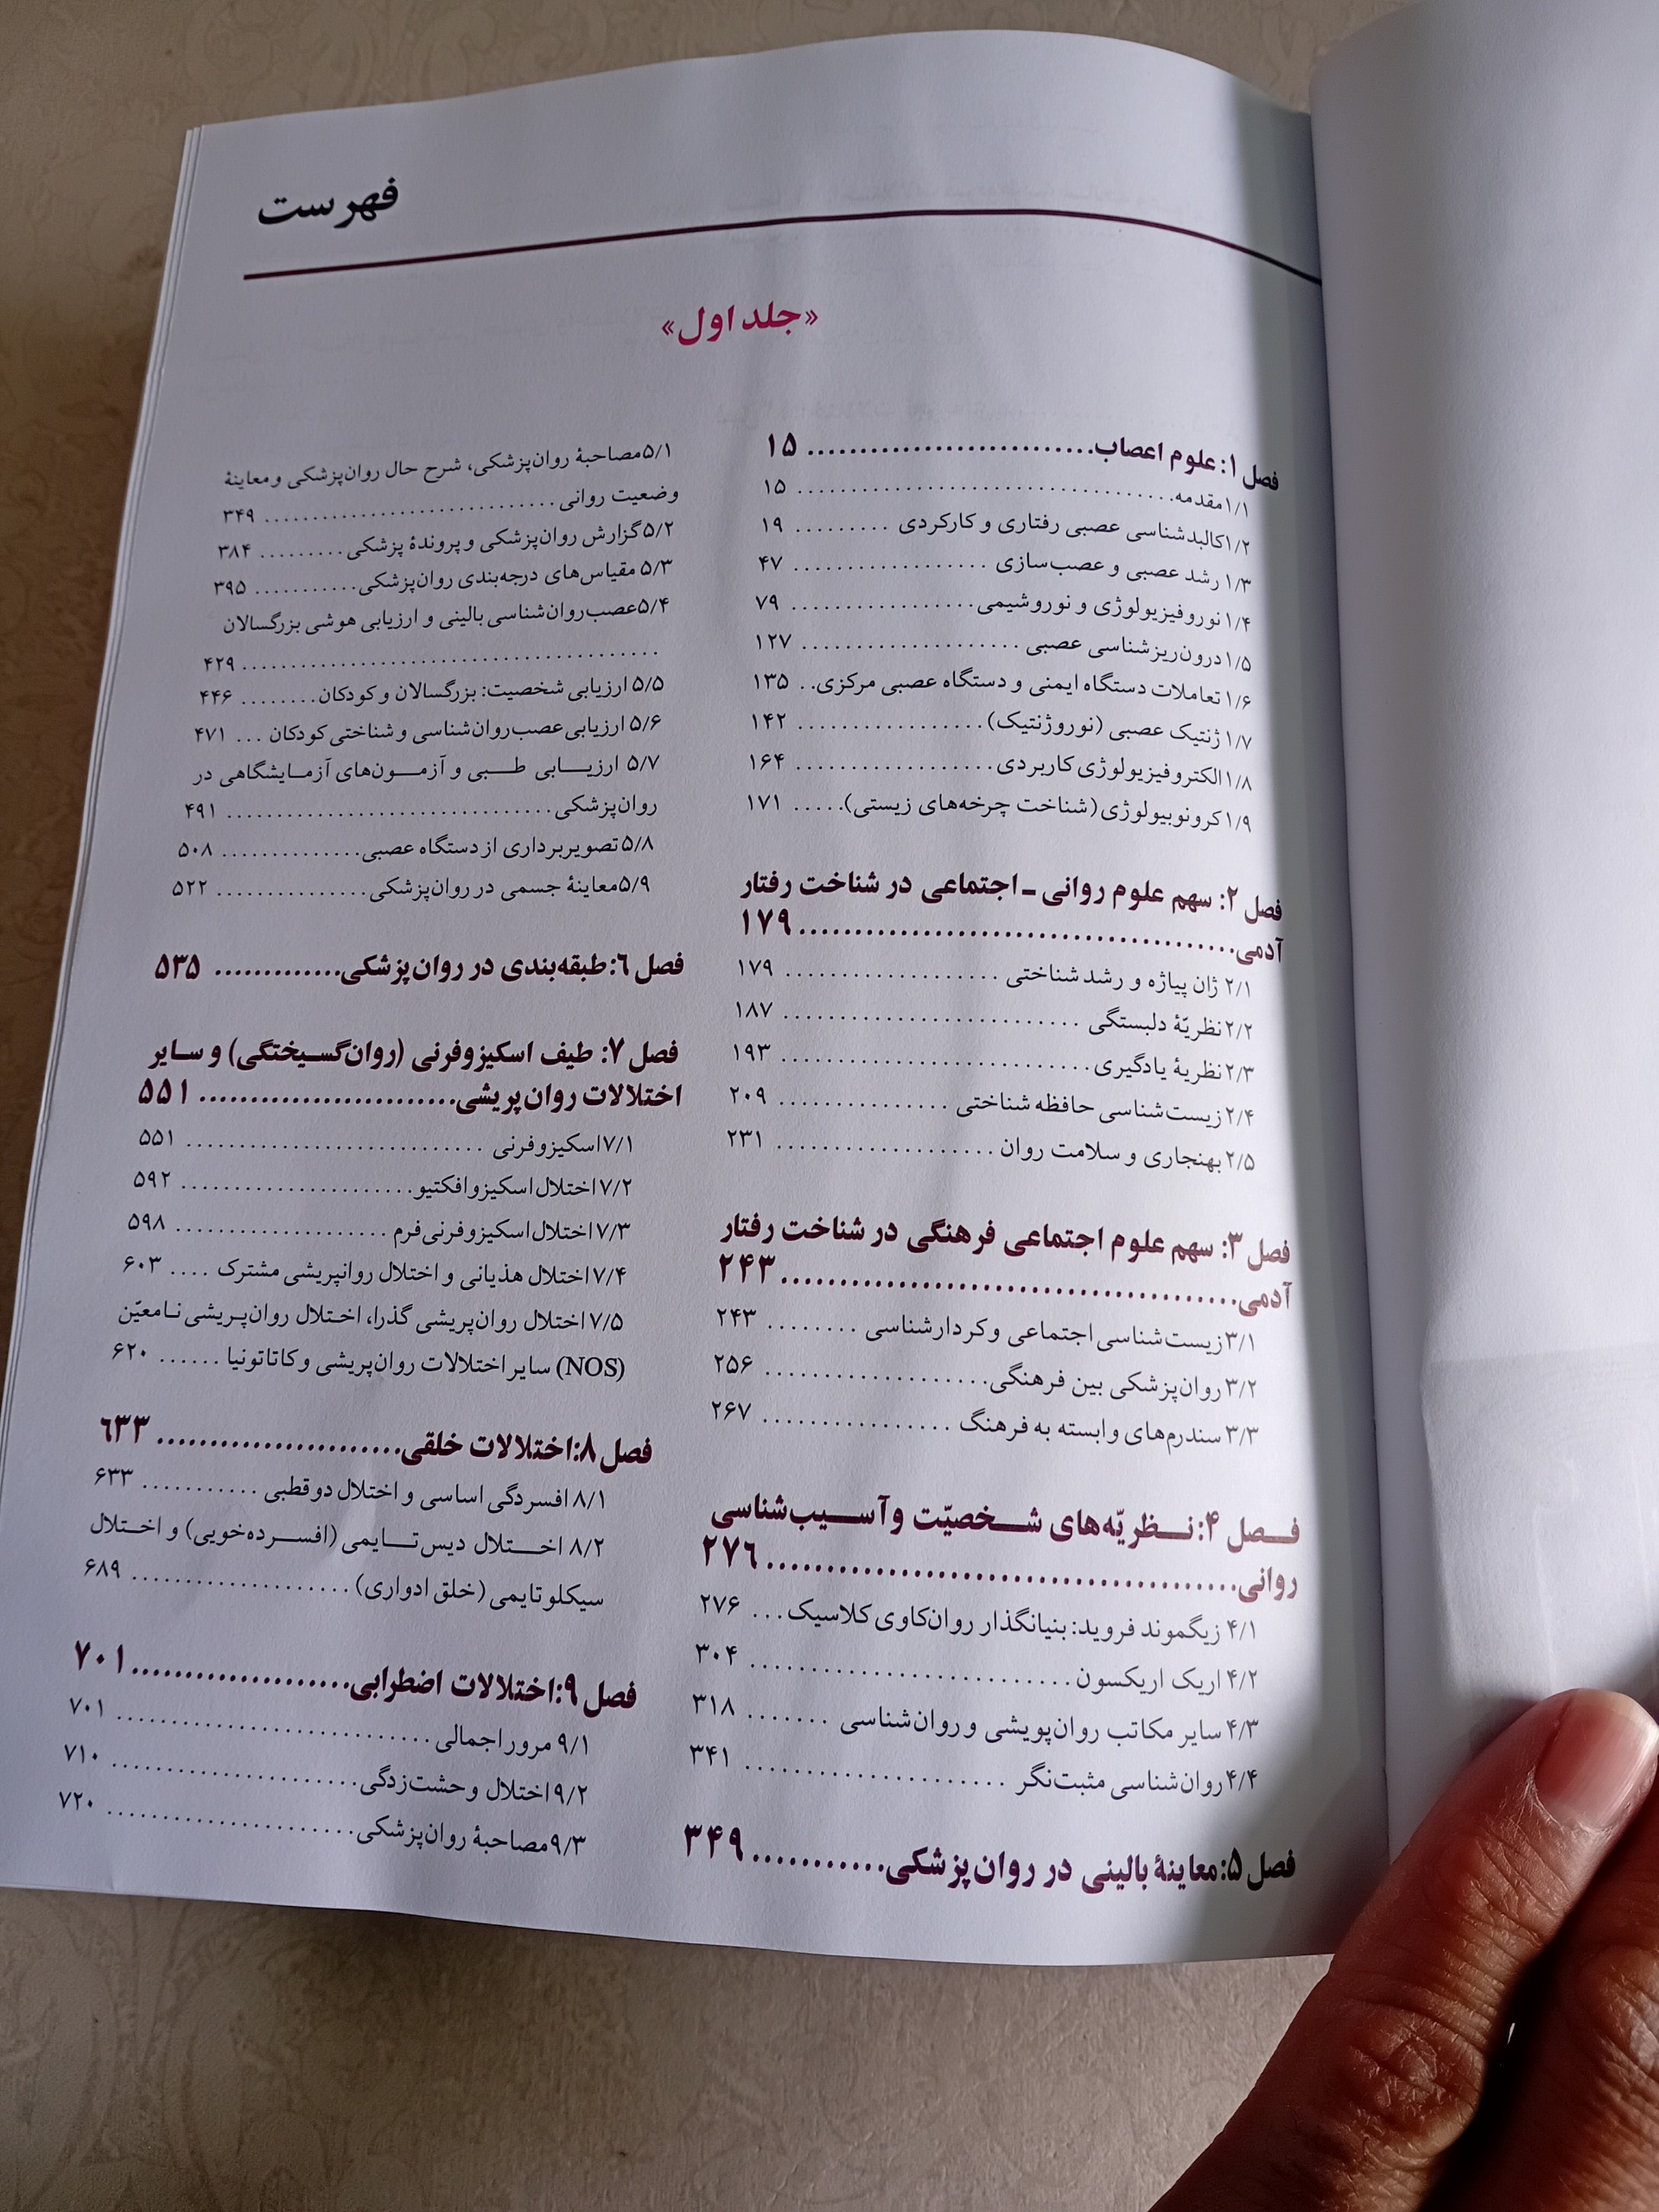 فهرست
«جلد اول»
فصل ۱: علوم اعصاب............................ ۱۵
۱/۱ مقدمه.................................... ۱۵
۱/۲ کالبدشناسی عصبی رفتاری و کارکردی ......... ۱۹
۱/۳ رشد عصبی و عصب‌سازی .................. ۴۷
۱/۴ نوروفیزیولوژی و نوروشیمی................. ۷۹
۱/۵ درون‌ریزشناسی عصبی .................... ۱۲۷
۱/۶ تعاملات دستگاه ایمنی و دستگاه عصبی مرکزی.. ۱۳۵
۱/۷ ژنتیک عصبی (نوروژنتیک).................. ۱۴۲
۱/۸ الکتروفیزیولوژی کاربردی.................. ۱۶۴
۱/۹ کرونوبیولوژی (شناخت چرخه‌های زیستی)..... ۱۷۱
فصل ۲: سهم علوم روانی ـ اجتماعی در شناخت رفتار
آدمی........................................ ۱۷۹
۲/۱ ژان پیاژه و رشد شناختی .................... ۱۷۹
۲/۲ نظریّهٔ دلبستگی ............................ ۱۸۷
۲/۳ نظریهٔ یادگیری............................. ۱۹۳
۲/۴ زیست‌شناسی حافظه شناختی ................ ۲۰۹
۲/۵ بهنجاری و سلامت روان .................... ۲۳۱
فصل ۳: سهم علوم اجتماعی فرهنگی در شناخت رفتار
آدمی.......................................... ۲۴۳
۳/۱ زیست‌شناسی اجتماعی و کردارشناسی ......... ۲۴۳
۳/۲ روان‌پزشکی بین فرهنگی.................... ۲۵۶
۳/۳ سندرم‌های وابسته به فرهنگ ................. ۲۶۷
فصل ۴: نظریّه‌های شخصیّت و آسیب‌شناسی
روانی.......................................... ۲۷۶
۴/۱ زیگموند فروید: بنیانگذار روان‌کاوی کلاسیک... ۲۷۶
۴/۲ اریک اریکسون............................. ۳۰۴
۴/۳ سایر مکاتب روان‌پویشی و روان‌شناسی ....... ۳۱۸
۴/۴ روان‌شناسی مثبت‌نگر ....................... ۳۴۱
فصل ۵: معاینهٔ بالینی در روان‌پزشکی............ ۳۴۹
۵/۱ مصاحبهٔ روان‌پزشکی، شرح حال روان‌پزشکی و معاینهٔ
وضعیت روانی.............................. ۳۴۹
۵/۲ گزارش روان‌پزشکی و پروندهٔ پزشکی......... ۳۸۴
۵/۳ مقیاس‌های درجه‌بندی روان‌پزشکی........... ۳۹۵
۵/۴ عصب‌روان‌شناسی بالینی و ارزیابی هوشی بزرگسالان
.......................................... ۴۲۹
۵/۵ ارزیابی شخصیت: بزرگسالان و کودکان........ ۴۴۶
۵/۶ ارزیابی عصب‌روان‌شناسی و شناختی کودکان ... ۴۷۱
۵/۷ ارزیابی طبی و آزمون‌های آزمایشگاهی در
روان‌پزشکی................................ ۴۹۱
۵/۸ تصویربرداری از دستگاه عصبی............... ۵۰۸
۵/۹ معاینهٔ جسمی در روان‌پزشکی................ ۵۲۲
فصل ۶: طبقه‌بندی در روان‌پزشکی............. ۵۳۵
فصل ۷: طیف اسکیزوفرنی (روان‌گسیختگی) و سایر
اختلالات روان‌پریشی......................... ۵۵۱
۷/۱ اسکیزوفرنی .............................. ۵۵۱
۷/۲ اختلال اسکیزوافکتیو........................ ۵۹۲
۷/۳ اختلال اسکیزوفرنی‌فرم ...................... ۵۹۸
۷/۴ اختلال هذیانی و اختلال روانپریشی مشترک .... ۶۰۳
۷/۵ اختلال روان‌پریشی گذرا، اختلال روان‌پریشی نامعیّن
(NOS) سایر اختلالات روان‌پریشی و کاتاتونیا ...... ۶۲۰
فصل ۸: اختلالات خلقی........................ ۶۳۳
۸/۱ افسردگی اساسی و اختلال دوقطبی ........... ۶۳۳
۸/۲ اختلال دیس‌تایمی (افسرده‌خویی) و اختلال
سیکلوتایمی (خلق ادواری) ...................... ۶۸۹
فصل ۹: اختلالات اضطرابی.................... ۷۰۱
۹/۱ مرور اجمالی................................ ۷۰۱
۹/۲ اختلال وحشت‌زدگی......................... ۷۱۰
۹/۳ مصاحبهٔ روان‌پزشکی......................... ۷۲۰